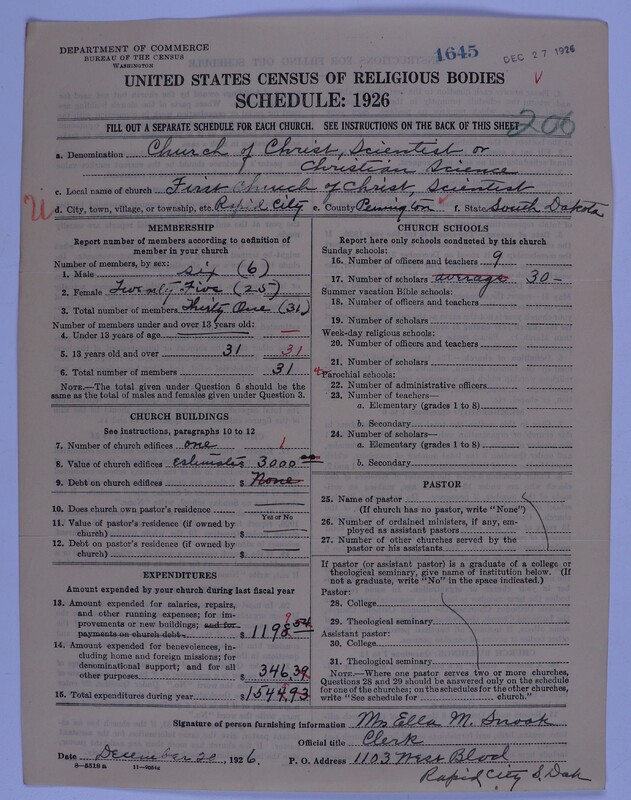 DEPARTMENT OF COMMERCE
BUREAU OF THE CENSUS
WASHINGTON
1645
DEC 27 1926
UNITED STATES CENSUS OF RELIGIOUS BODIES
SCHEDULE: 1926
FILL OUT A SEPARATE SCHEDULE FOR EACH CHURCH. SEE INSTRUCTIONS ON THE BACK OF THIS SHEET
206
a. Denomination Church of Christ, Scientist or
Christian Science
c. Local name of church First Church of Christ, Scientist
d. City, town, village, or township, etc. Rapid City e. County Pennington f. State South Dakota
MEMBERSHIP
Report number of members according to definition of
member in your church
Number of members, by sex:
1. Male six (6)
2. Female Twenty Five (25)
3. Total number of members Thirty One (31)
Number of members under and over 13 years old:
4. Under 13 years of age
5. 13 years old and over 31 31
6. Total number of members 31
NOTE.—The total given under Question 6 should be the
same as the total of males and females given under Question 3.
CHURCH BUILDINGS
See instructions, paragraphs 10 to 12
7. Number of church edifices one 1
8. Value of church edifices estimates $ 3000 00
9. Debt on church edifices $ None
10. Does church own pastor's residence
Yes or No
11. Value of pastor's residence (if owned by
church) $
12. Debt on pastor's residence (if owned by
church) $
EXPENDITURES
Amount expended by your church during last fiscal year
13. Amount expended for salaries, repairs,
and other running expenses; for im-
provements or new buildings; and for
payments on church debt $ 1198.54 9
14. Amount expended for benevolences,
including home and foreign missions; for
denominational support; and for all
other purposes $ 346.39
15. Total expenditures during year $ 1544.93
CHURCH SCHOOLS
Report here only schools conducted by this church
Sunday schools:
16. Number of officers and teachers 9
17. Number of scholars average 30-
Summer vacation Bible schools:
18. Number of officers and teachers
19. Number of scholars
Week-day religious schools:
20. Number of officers and teachers
21. Number of scholars
Parochial schools:
22. Number of administrative officers
23. Number of teachers—
a. Elementary (grades 1 to 8)
b. Secondary
24. Number of scholars—
a. Elementary (grades 1 to 8)
b. Secondary
PASTOR
25. Name of pastor
(If church has no pastor, write "None")
26. Number of ordained ministers, if any, em-
ployed as assistant pastors
27. Number of other churches served by the
pastor or his assistants
If pastor (or assistant pastor) is a graduate of a college or
theological seminary, give name of institution below. (If
not a graduate, write "No" in the space indicated.)
Pastor:
28. College
29. Theological seminary
Assistant pastor:
30. College
31. Theological seminary
NOTE.—Where one pastor serves two or more churches,
Questions 28 and 29 should be answered only on the schedule
for one of the churches; on the schedules for the other churches,
write "See schedule for church."
Signature of person furnishing information Mrs Ella M. Snook
Official title Clerk
Date December 20, 1926. P. O. Address 1103 West Blvd
Rapid City S Dak